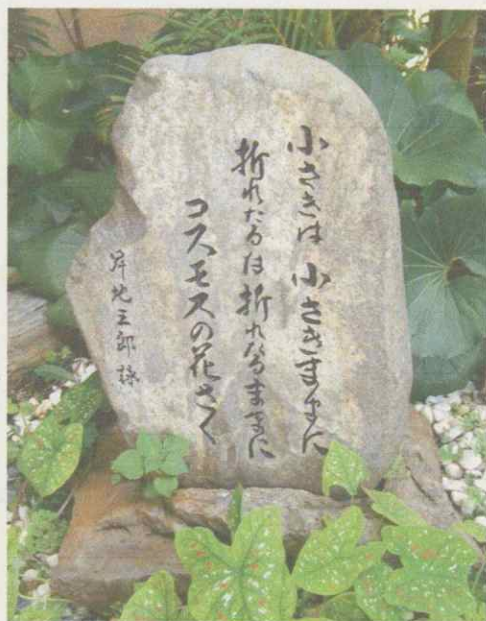 小さきは 小さきままに
折れたるは 折れたるままに
コスモスの花さく
昇地三郎 詠